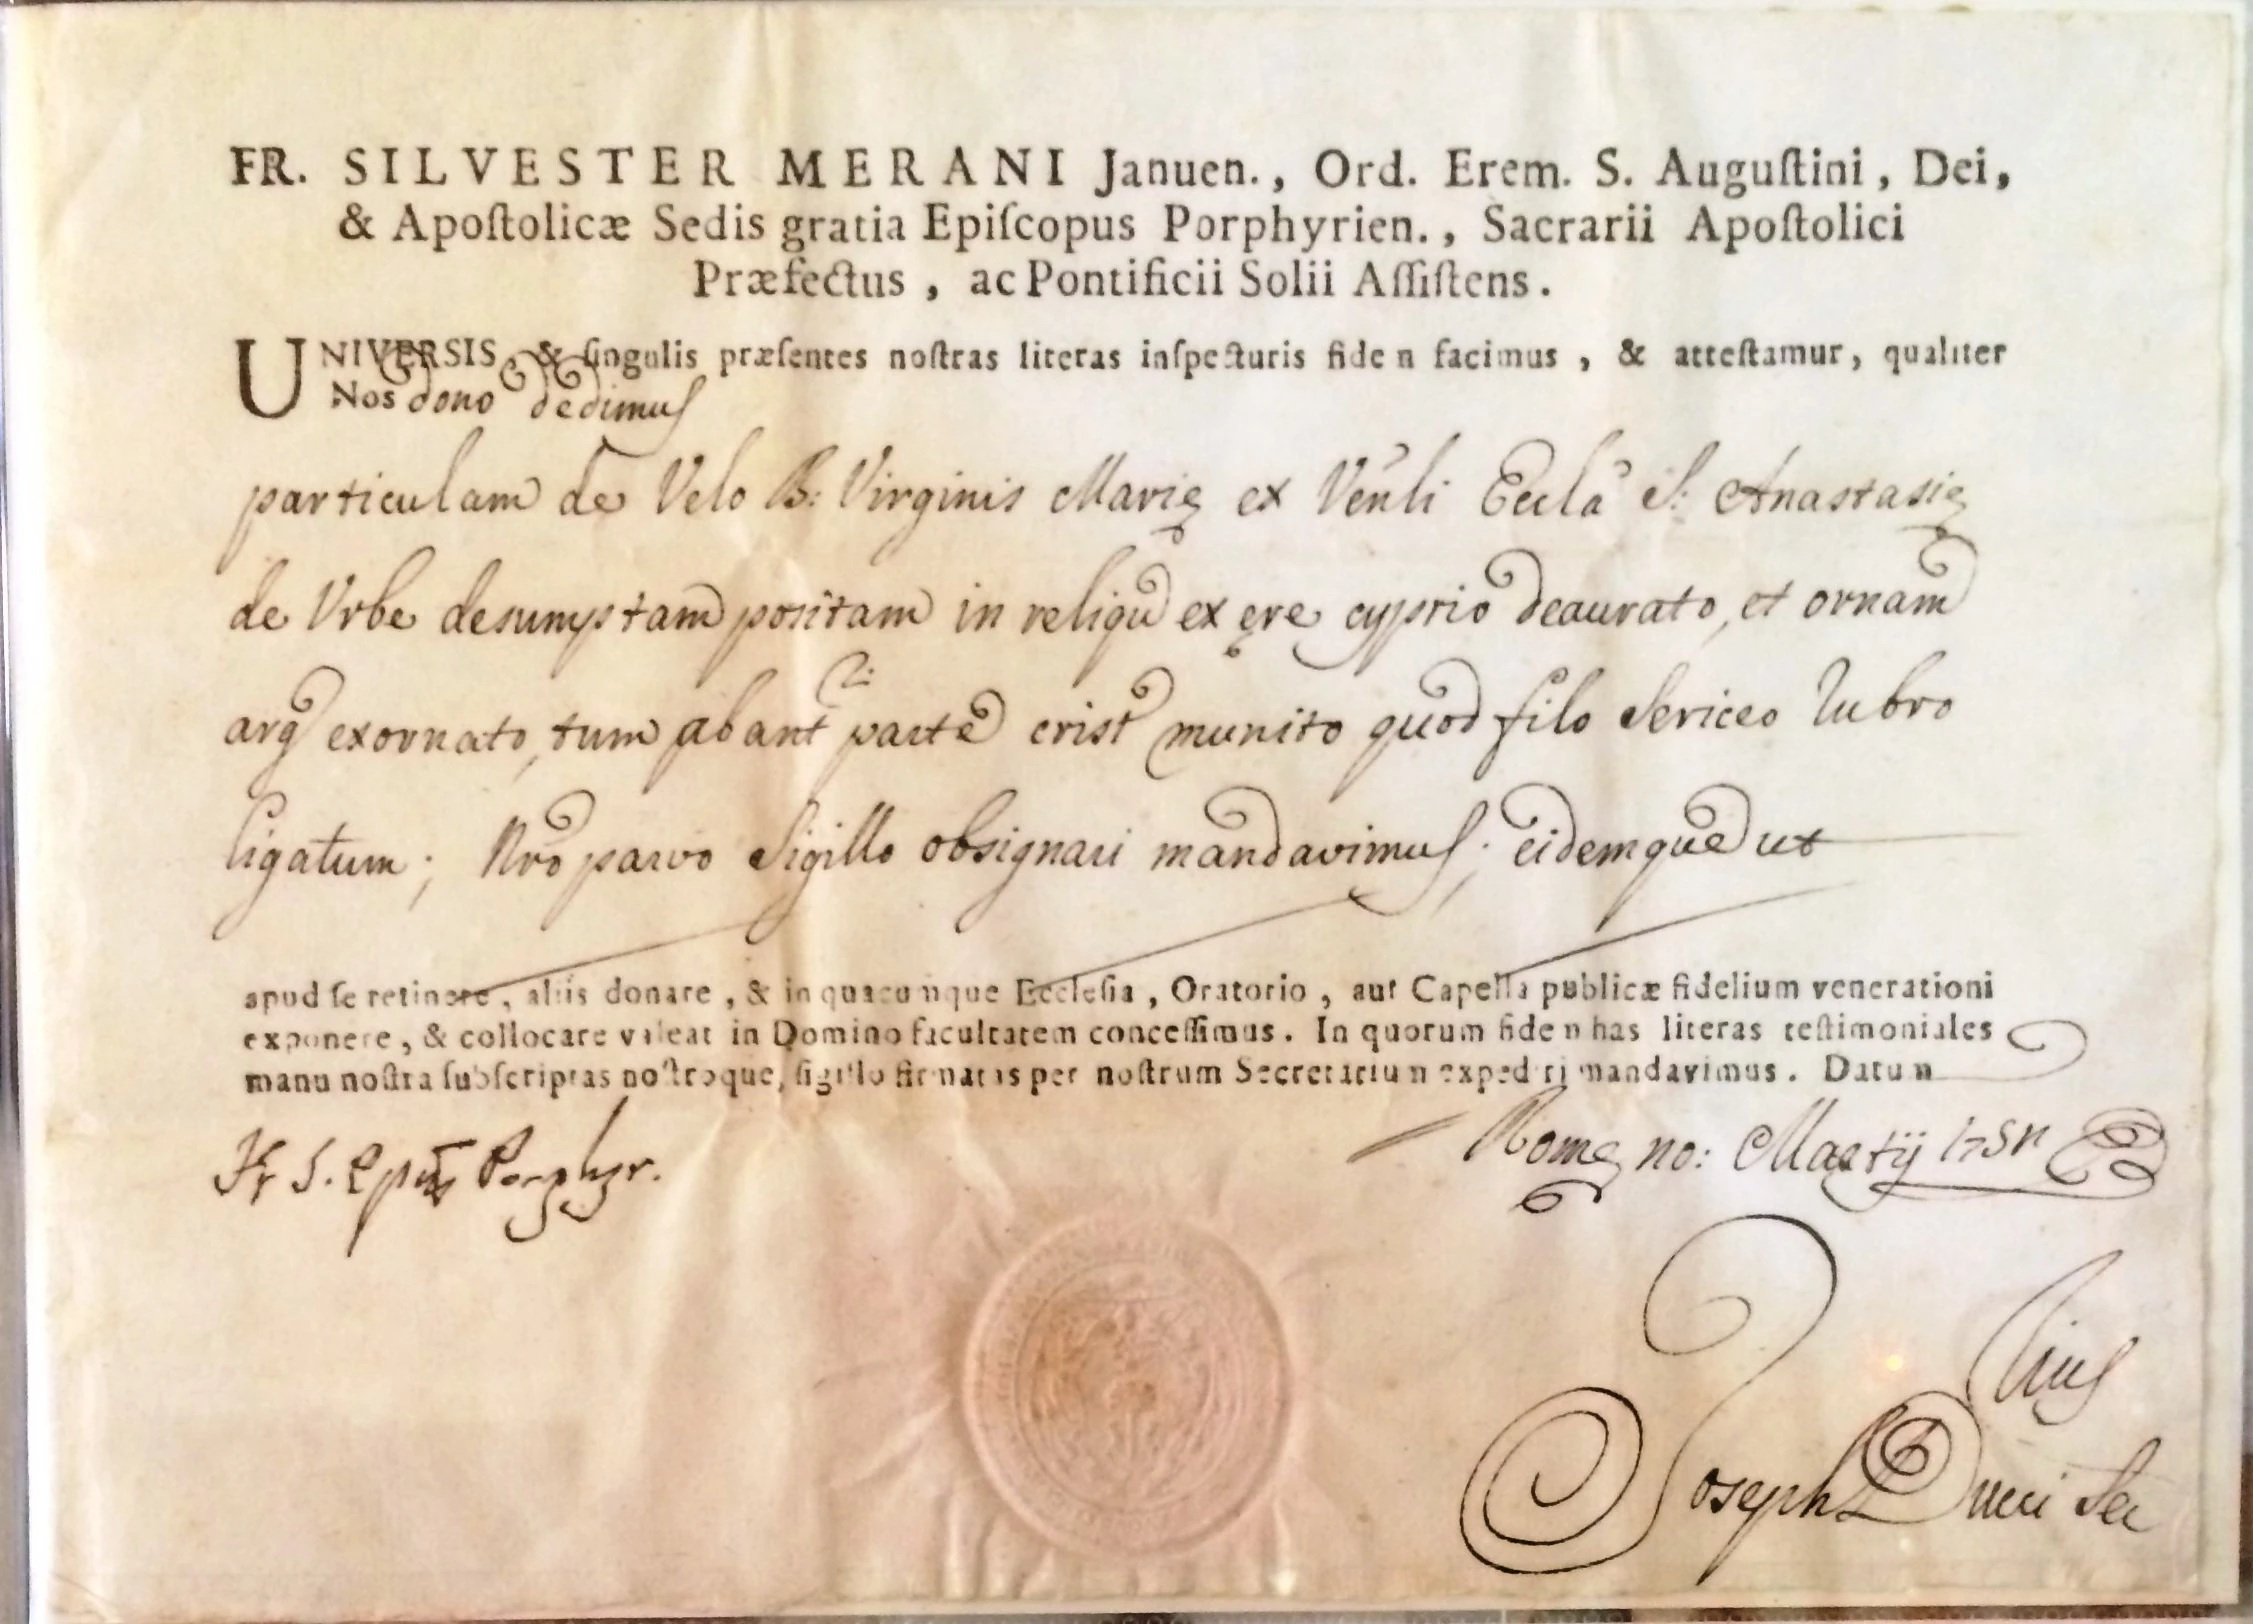 FR. SILVESTER MERANI Januen., Ord. Erem. S. Auguſtini, Dei,
& Apoſtolicæ Sedis gratia Epiſcopus Porphyrien., Sacrarii Apoſtolici
Præfectus, ac Pontificii Solii Aſſiſtens.
UNIVERSIS, & ſingulis præſentes noſtras literas inſpecturis fidem facimus, & atteſtamur, qualiter
Nos dono dedimus
particulam de Velo B: Virginis Marię ex Venli Eccla S: Anastasię
de Urbe desumptam positam in reliqu ex ęre cyprio deaurato, et ornam
arg exornato, tum ab ant parte crist munito quod filo sericeo rubro
ligatum; Nro parvo sigillo obsignari mandavimus; eidemque ut
apud ſe retinere, aliis donare, & in quacunque Eccleſia, Oratorio, aut Capella publicæ fidelium venerationi
exponere, & collocare valeat in Domino facultatem conceſſimus. In quorum fidem has literas teſtimoniales
manu noſtra ſubſcriptas noſtroque, ſigillo firmatas per noſtrum Secretarium expediri mandavimus. Datum
Romę no: Martij
Fr S. Epus Porphyr.
Joseph Ducci Sec